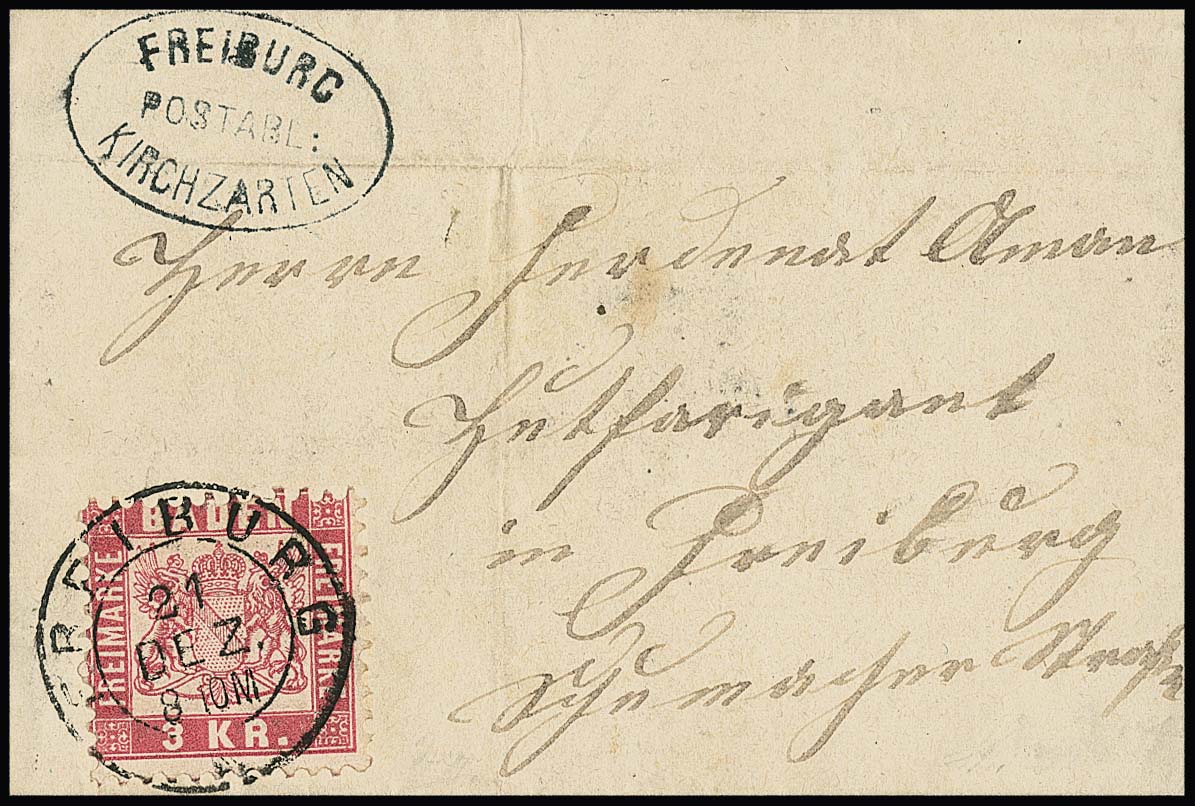 FREIBURG
POSTABL:
KIRCHZARTEN
Herrn Ferdenat Aman
Hutfarigant
in Freiburg
Schumacher Straße
BADEN
FREIMARKE
FREIMARKE
3 KR.
FREIBURG
21
DEZ.
8-10M